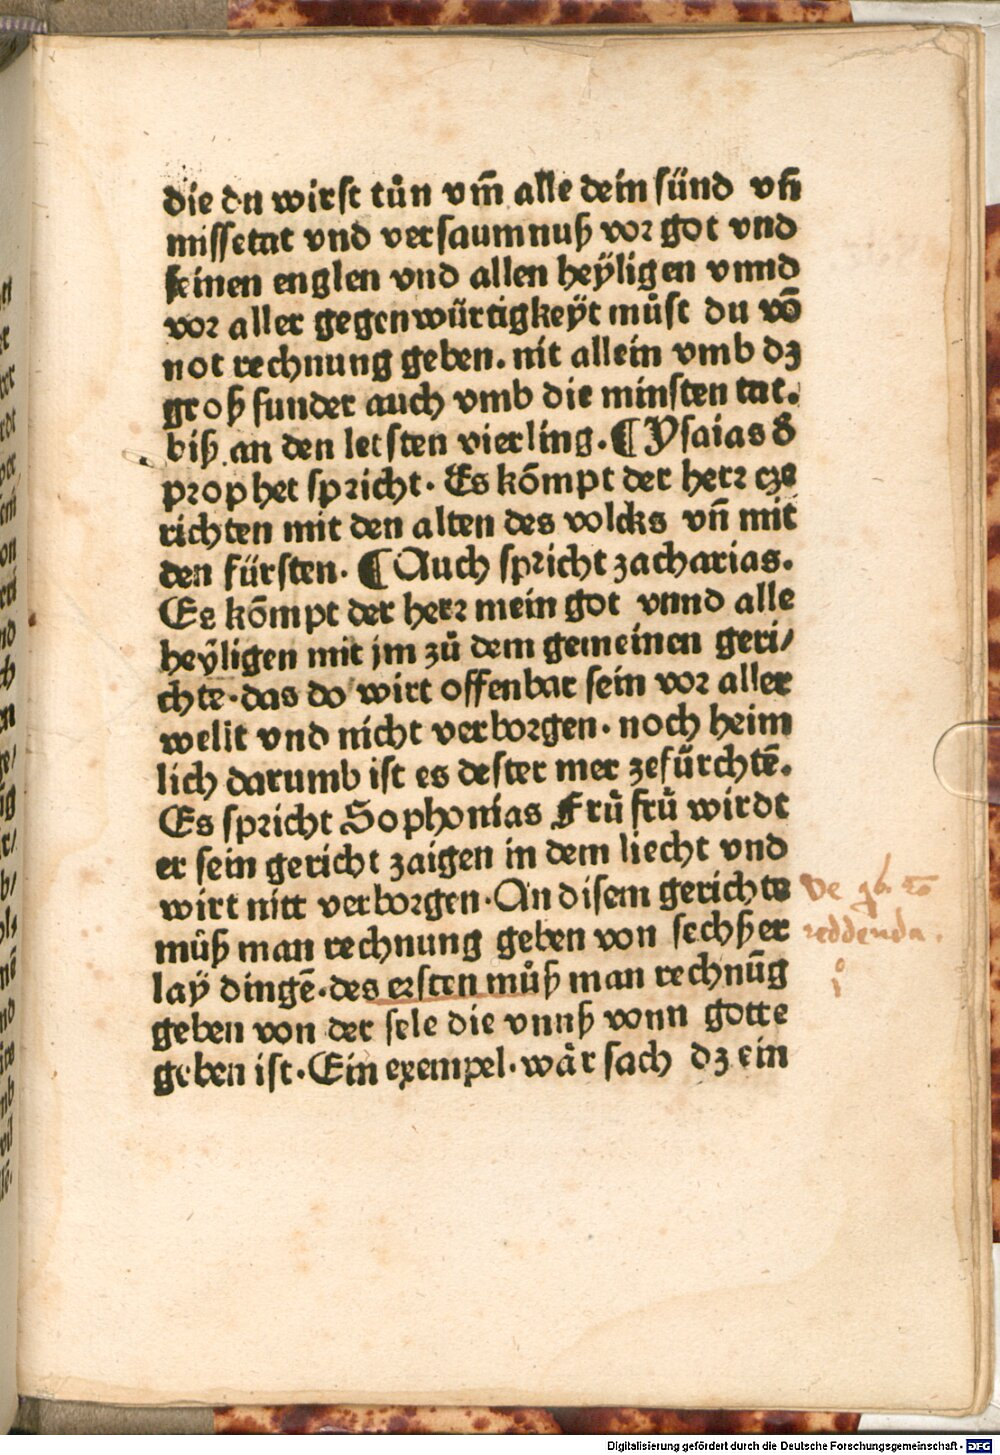 die du wirst tůn vm̃ alle dein sünd vñ
missetat vnd versaumnuß vor got vnd
seinen englen vnd allen heÿligen vnnd
vor aller gegenwürtigkeÿt můst du võ
not rechnung geben. nit allein vmb dʒ
groß sunder auch vmb die minsten tat.
biß an den letsten vierling. ¶ Ysaias d̕
prophet spricht. Es kõmpt der herr cze
richten mit den alten des volcks vñ mit
den fürsten. ¶ Auch spricht zacharias.
Es kõmpt der herr mein got vnnd alle
heÿligen mit jm zů dem gemeinen geri/
chte. das do wirt offenbar sein vor aller
wellt vnd nicht verborgen. noch heim
lich darumb ist es dester mer zefürchtẽ.
Es spricht Sophonias Frů frů wirdt
er sein gericht zaigen in dem liecht vnd
wirt nitt verborgen. An disem gerichte
můß man rechnung geben von sechßer
laÿ dingẽ. des ersten můß man rechnũg
geben von der sele die vnnß vonn gotte
geben ist. Ein exempel. wår sach dʒ ein
De
reddenda.
Digitalisierung gefördert durch die Deutsche Forschungsgemeinschaft - DFG